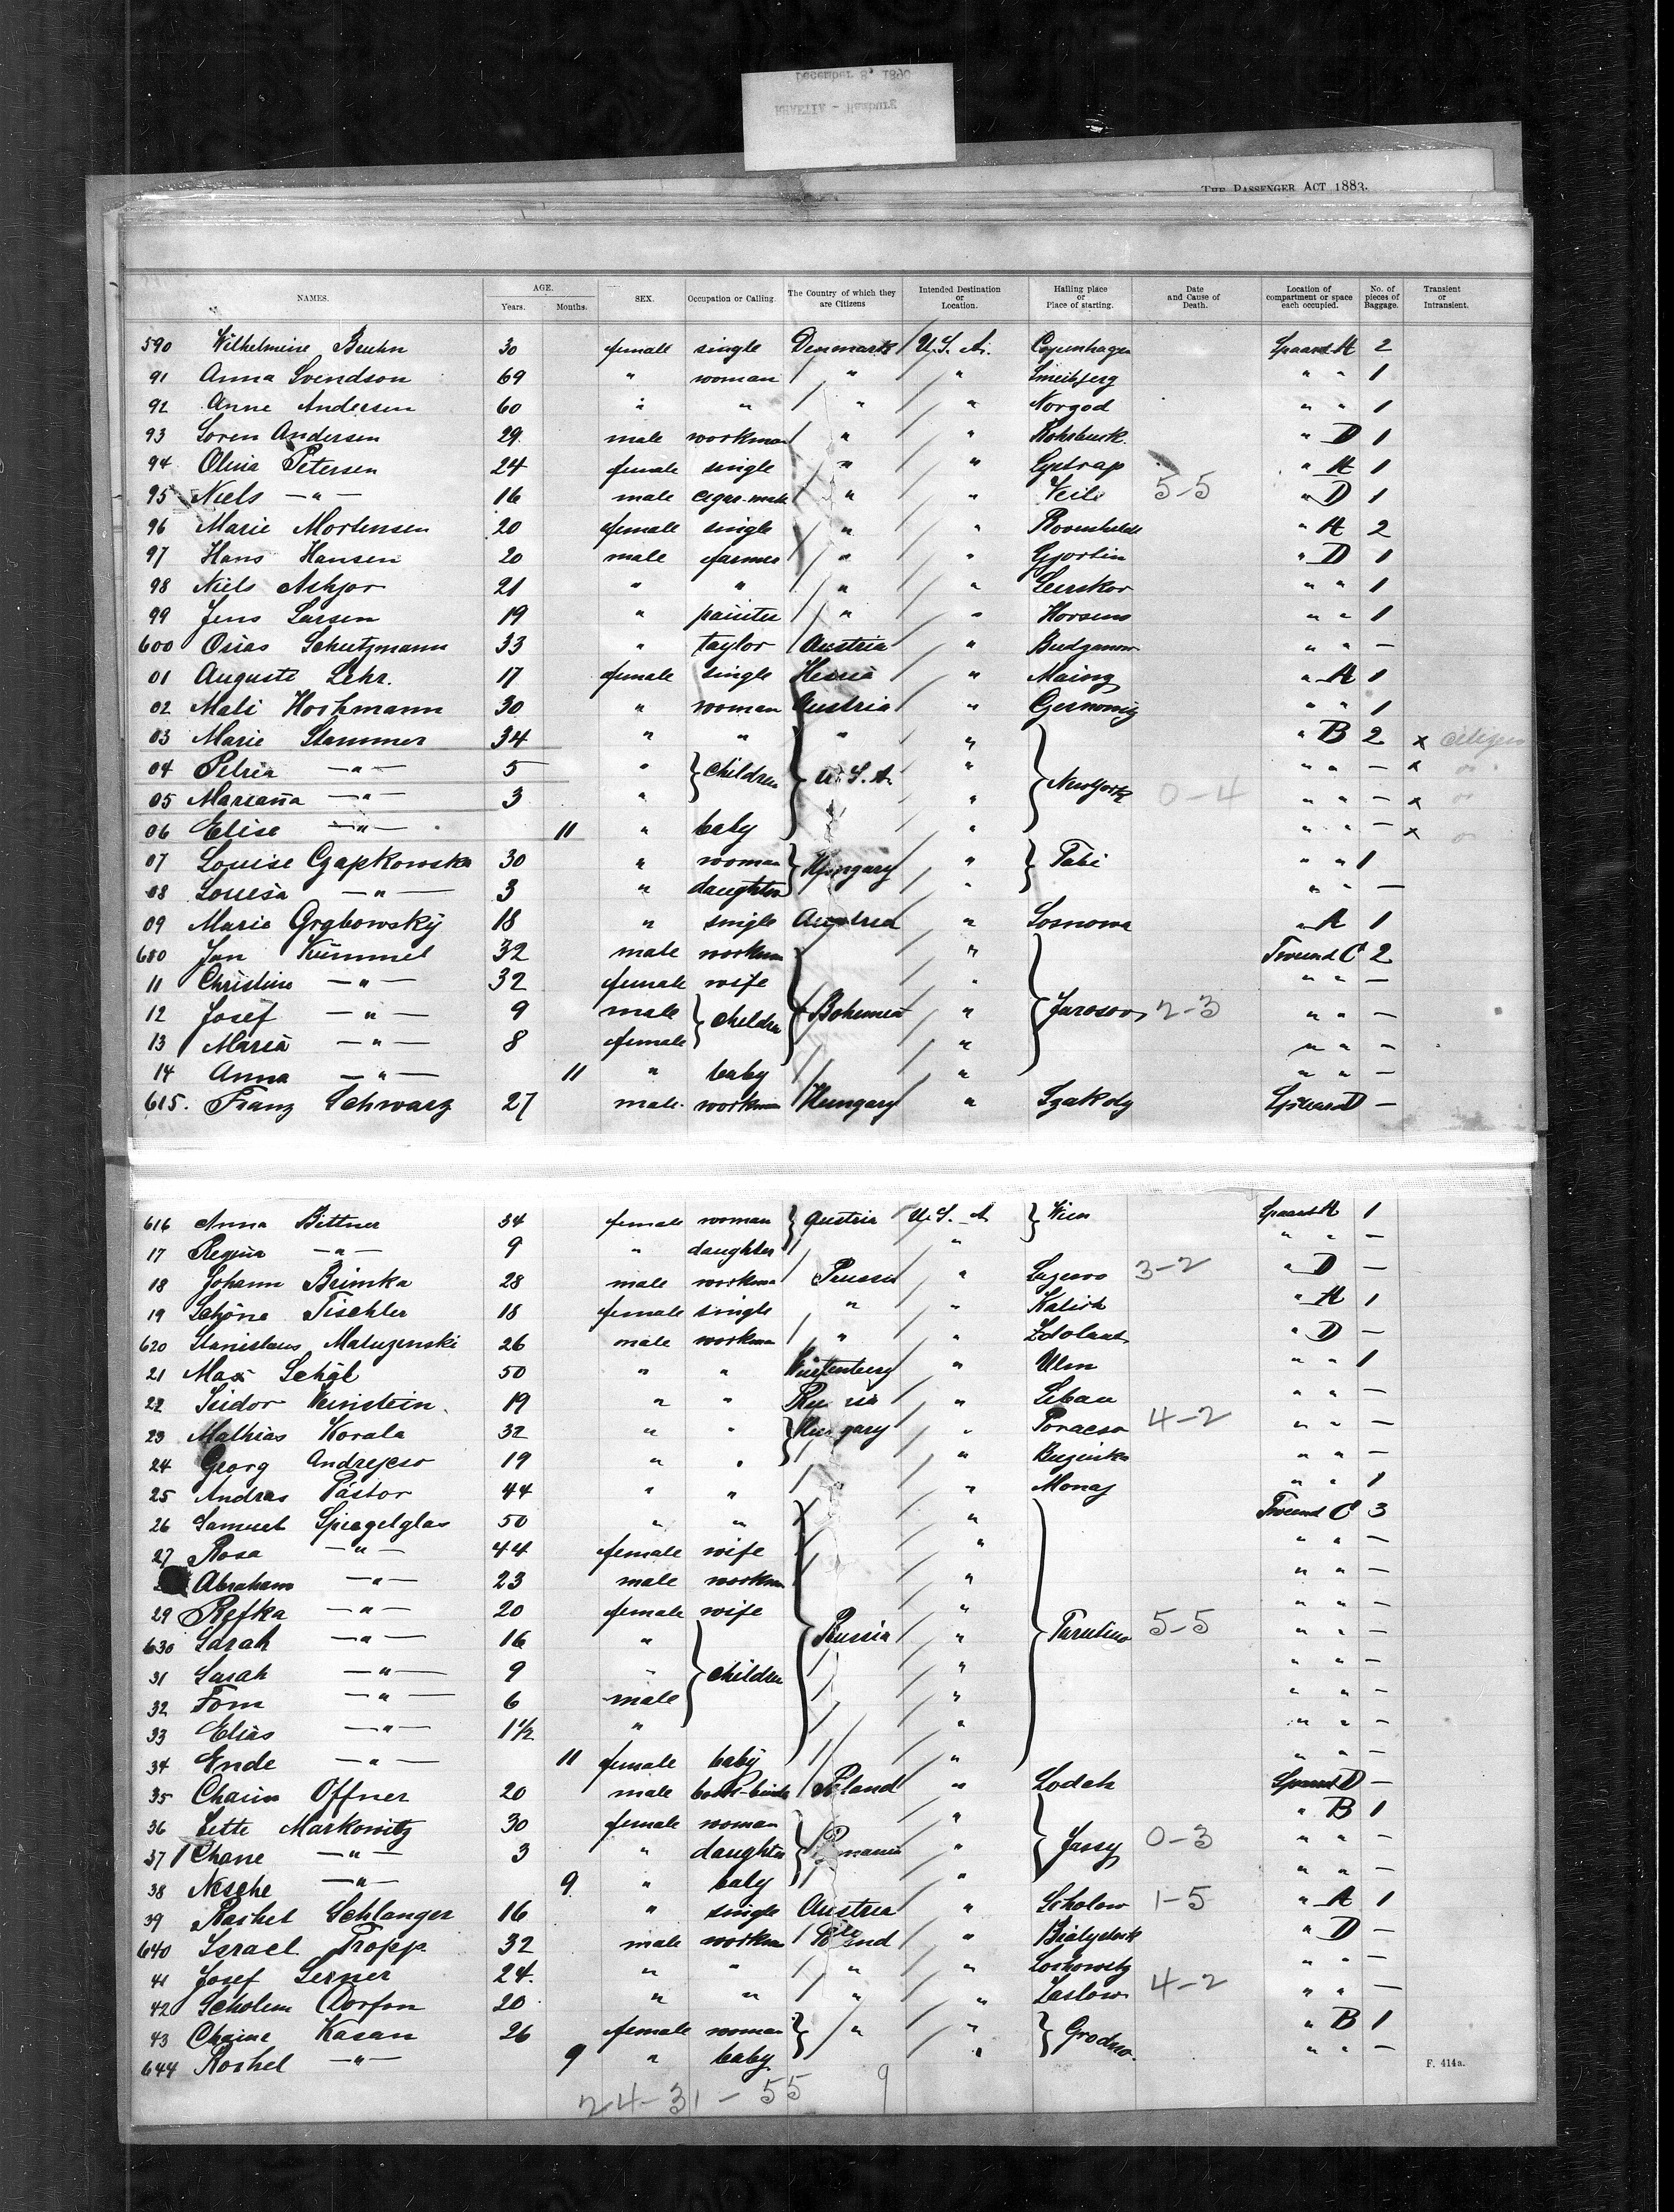 December 8, 1890
RHAETIA - Hamburg
THE PASSENGER ACT 1883.
NAMES. AGE. Years. Months. SEX. Occupation or Calling. The Country of which they are Citizens Intended Destination or Location. Hailing place or Place of starting. Date and Cause of Death. Location of compartment or space each occupied. No. of pieces of Baggage. Transient or Intransient.
590 Wilhelmine Bruhn 30 female single Denmark U.S. A. Copenhagen H 2
91 Anna Svendson 69 " woman " " " " 1
92 Anne Andersen 60 " " " " Norgod " " 1
93 Soren Andersen 29 male workman " " " D 1
94 Oline Petersen 24 female single " " " H 1
95 Niels —"— 16 male " " Veile 5-5 " D 1
96 Marie Mortensen 20 female single " " " H 2
97 Hans Hansen 20 male farmer " " " D 1
98 Niels 21 " " " " " " 1
99 Jens Larsen 19 " painter " " Horsens " " 1
600 Osias Schutzmann 33 " taylor Austria " " " —
01 Auguste Lehr. 17 female single Hessia " Mainz " H 1
02 Mali Hochmann 30 " woman Austria " " " 1
03 Marie Stammer 34 " " " " " B 2 x
04 —"— 5 " children U.S.A. " New York " " — x
05 Marianna —"— 3 " " 0-4 " " — x
06 Elise —"— 11 " baby " " " — x
07 Louise Czapkowska 30 " woman Hungary " Tabi " " 1
08 Louisa —"— 3 " daughter " " " —
09 Marie Grabowsky 18 " single Austria " " H 1
610 Jan Kümmel 32 male workman " C 2
11 Christine —"— 32 female wife " " " —
12 Josef —"— 9 male children Bohemia " 2-3 " " —
13 Maria —"— 8 female " " " —
14 Anna —"— 11 " baby " " " —
615. Franz Schwarz 27 male workman Hungary " D —
616 Anna Bittner 34 female woman Austria U.S. A Wien H 1
17 Regina —"— 9 " daughter " " " —
18 Johann Brimka 28 male workman " 3-2 " D —
19 Schöne Tischler 18 female single " " Kalisch " H 1
620 Stanislaus 26 male workman " " " D —
21 Max 50 " " Würtenberg " Ulm " " 1
22 Isidor Weinstein 19 " " Russia " Libau " " —
23 Mathias Korala 32 " " Hungary " 4-2 " " —
24 Georg 19 " " " " " —
25 Andras Pástor 44 " " " Monaj " " 1
26 Samuel Spiegelglas 50 " " " C 3
27 Rosa —"— 44 female wife " " " —
Abraham —"— 23 male workman " " " —
29 Refka —"— 20 female wife " " " —
630 Sarah —"— 16 " Russia " Tarutino 5-5 " " —
31 Sarah —"— 9 " children " " " —
32 Tom —"— 6 male " " " —
33 Elias —"— 1½ " " " " —
34 Ende —"— 11 female baby " " " —
35 Chaim Offner 20 male book-binder Poland " Lodch D —
36 Lette Markowitz 30 female woman " " B 1
37 Chane —"— 3 " daughter Romania " Jassy 0-3 " " —
38 Nesche —"— 9 " baby " " " —
39 Rachel Schlanger 16 " single Austria " 1-5 " A 1
640 Israel Propp 32 male workman Poland " Bialystock " D —
41 Josef Lerner 24. " " " " " " —
42 Scholem Dorfon 20 " " " " Zaslow 4-2 " " —
43 Chaine Kasan 26 female woman " " Grodno " B 1
644 —"— 9 " baby " " " —
24-31-55 9
F. 414a.